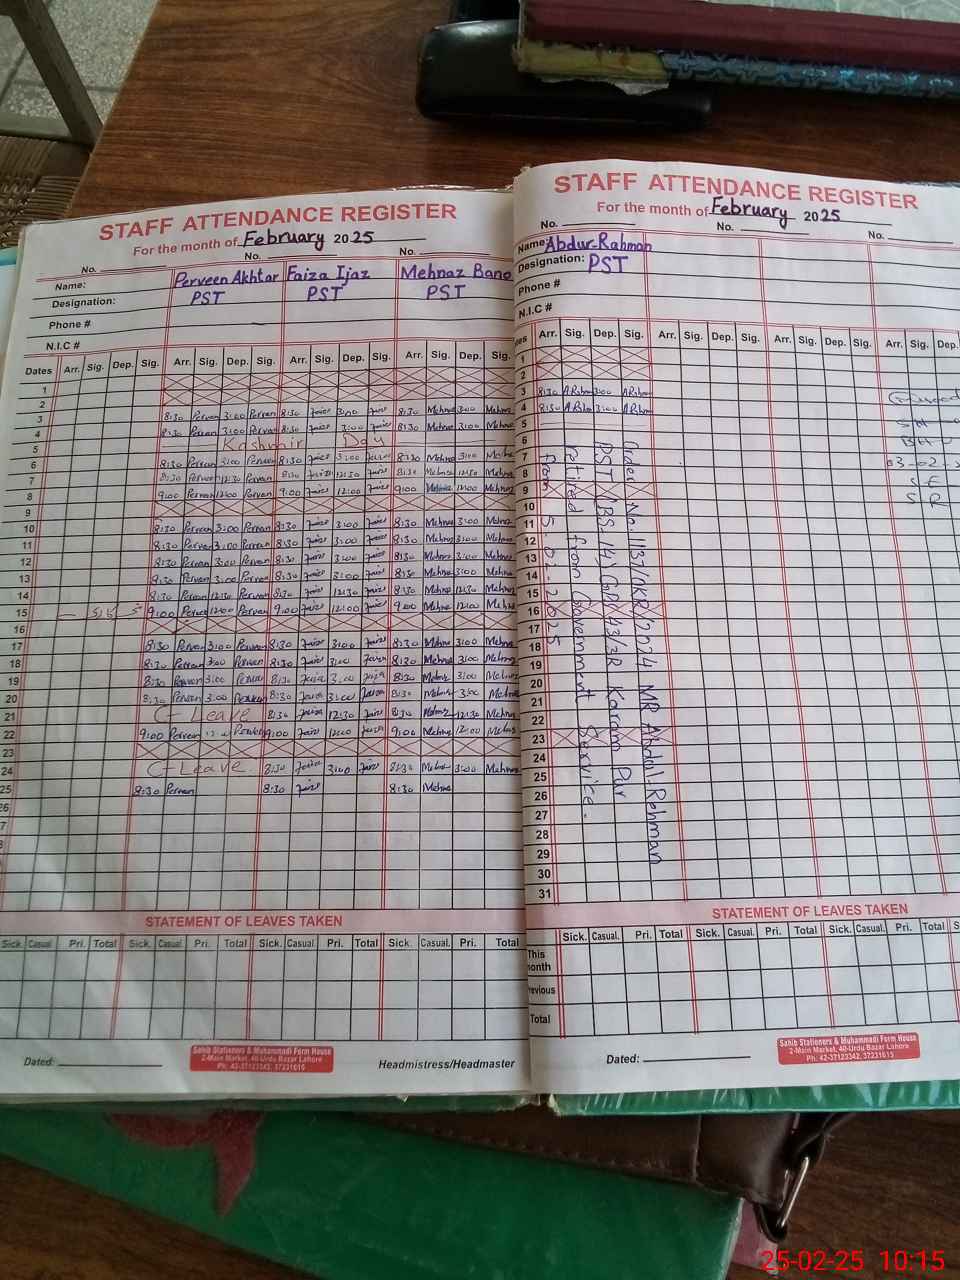 STAFF ATTENDANCE REGISTER
For the month of February 2025
No. No. No.
Name: Perveen Akhtar Faiza Ijaz Mehnaz Bano
Designation: PST PST PST
Phone #
N.I.C #
Dates Arr. Sig. Dep. Sig. Arr. Sig. Dep. Sig. Arr. Sig. Dep. Sig. Arr. Sig. Dep. Sig.
1
2
3 8:30 Pervan 3:00 Pervan 8:30 Faiza 3:00 Faiza 8:30 Mehnaz 3:00 Mehnaz
4 8:30 Pervan 3:00 Pervan 8:30 Faiza 3:00 Faiza 8:30 Mehnaz 3:00 Mehnaz
5 Kashmir Day
6 8:30 Pervan 3:00 Pervan 8:30 Faiza 3:00 Faiza 8:30 Mehnaz 3:00 Mehnaz
7 8:30 Pervan 12:30 Pervan 8:30 Faiza 12:30 Faiza 8:30 Mehnaz 12:30 Mehnaz
8 9:00 Pervan 12:00 Pervan 9:00 Faiza 12:00 Faiza 9:00 Mehnaz 12:00 Mehnaz
9
10 8:30 Pervan 3:00 Pervan 8:30 Faiza 3:00 Faiza 8:30 Mehnaz 3:00 Mehnaz
11 8:30 Pervan 3:00 Pervan 8:30 Faiza 3:00 Faiza 8:30 Mehnaz 3:00 Mehnaz
12 8:30 Pervan 3:00 Pervan 8:30 Faiza 3:00 Faiza 8:30 Mehnaz 3:00 Mehnaz
13 8:30 Pervan 3:00 Pervan 8:30 Faiza 3:00 Faiza 8:30 Mehnaz 3:00 Mehnaz
14 8:30 Pervan 12:30 Pervan 8:30 Faiza 12:30 Faiza 8:30 Mehnaz 12:30 Mehnaz
15 9:00 Pervan 12:00 Pervan 9:00 Faiza 12:00 Faiza 9:00 Mehnaz 12:00 Mehnaz
16
17 8:30 Pervan 3:00 Pervan 8:30 Faiza 3:00 Faiza 8:30 Mehnaz 3:00 Mehnaz
18 8:30 Pervan 3:00 Pervan 8:30 Faiza 3:00 Faiza 8:30 Mehnaz 3:00 Mehnaz
19 8:30 Pervan 3:00 Pervan 8:30 Faiza 3:00 Faiza 8:30 Mehnaz 3:00 Mehnaz
20 8:30 Pervan 3:00 Pervan 8:30 Faiza 3:00 Faiza 8:30 Mehnaz 3:00 Mehnaz
21 C-Leave 8:30 Faiza 12:30 Faiza 8:30 Mehnaz 12:30 Mehnaz
22 9:00 Pervan Pervan 9:00 Faiza 12:00 Faiza 9:00 Mehnaz 12:00 Mehnaz
23
24 C-Leave 8:30 Faiza 3:00 Faiza 8:30 Mehnaz 3:00 Mehnaz
25 8:30 Pervan 8:30 Faiza 8:30 Mehnaz
STATEMENT OF LEAVES TAKEN
Sick. Casual Pri. Total Sick. Casual. Pri. Total Sick. Casual. Pri. Total Sick. Casual. Pri. Total
Dated:
Sahib Stationers & Muhammadi Form House
2-Main Market, 40-Urdu Bazar Lahore
Ph: 42-37123342, 37231615
Headmistress/Headmaster
STAFF ATTENDANCE REGISTER
For the month of February 2025
No. No. No.
Name: Abdur-Rahman
Designation: PST
Phone #
N.I.C #
Arr. Sig. Dep. Sig. Arr. Sig. Dep. Sig. Arr. Sig. Dep. Sig. Arr. Sig. Dep.
1
2
3 8:30 ARahm 3:00 ARahm
4 8:30 ARahm 3:00 ARahm
5
6
7
8
9
10
11
12
13
14
15
16
17
18
19
20
21
22
23
24
25
26
27
28
29
30
31
Order No: 1137/AKR/2024 MR Abdul-Rehman
PST (BS-14) GPS 43/3R Karam Pur
retired from Government Service.
from 5-02-2025
STATEMENT OF LEAVES TAKEN
Sick. Casual. Pri. Total Sick. Casual. Pri. Total Sick. Casual. Pri. Total
This month
Previous
Total
Dated:
Sahib Stationers & Muhammadi Form House
2-Main Market, 40-Urdu Bazar Lahore
Ph: 42-37123342, 37231615
25-02-25 10:15